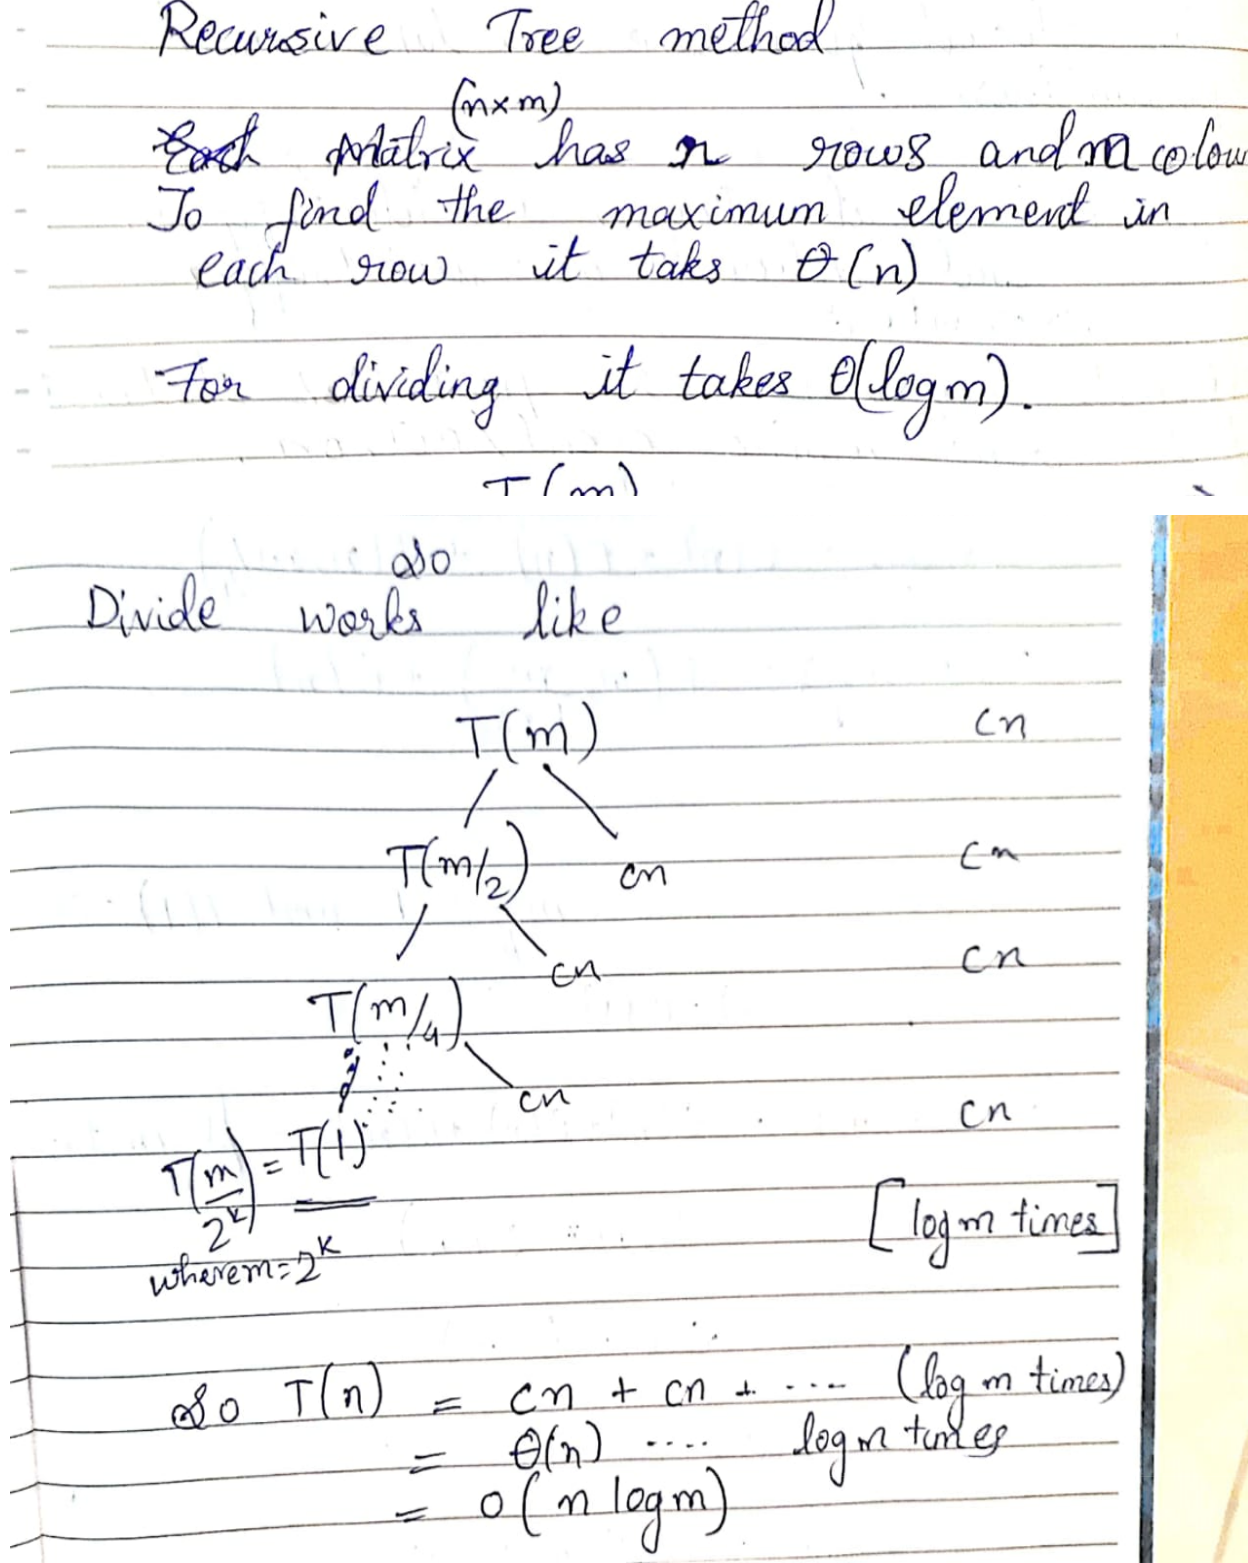 Recursive Tree method
(n×m)
Each Matrix has n rows and m colou
To find the maximum element in
each row it taks θ(n)
For dividing it takes θ(log m).
T(m)
so
Divide works like
T(m) cn
T(m/2) cn cn
cn cn
T(m/4)
cn cn
T(m/2^k) = T(1)
[log m times]
where m=2^k
So T(n) = cn + cn + .... (log m times)
= θ(n) .... log m times
= O(n log m)